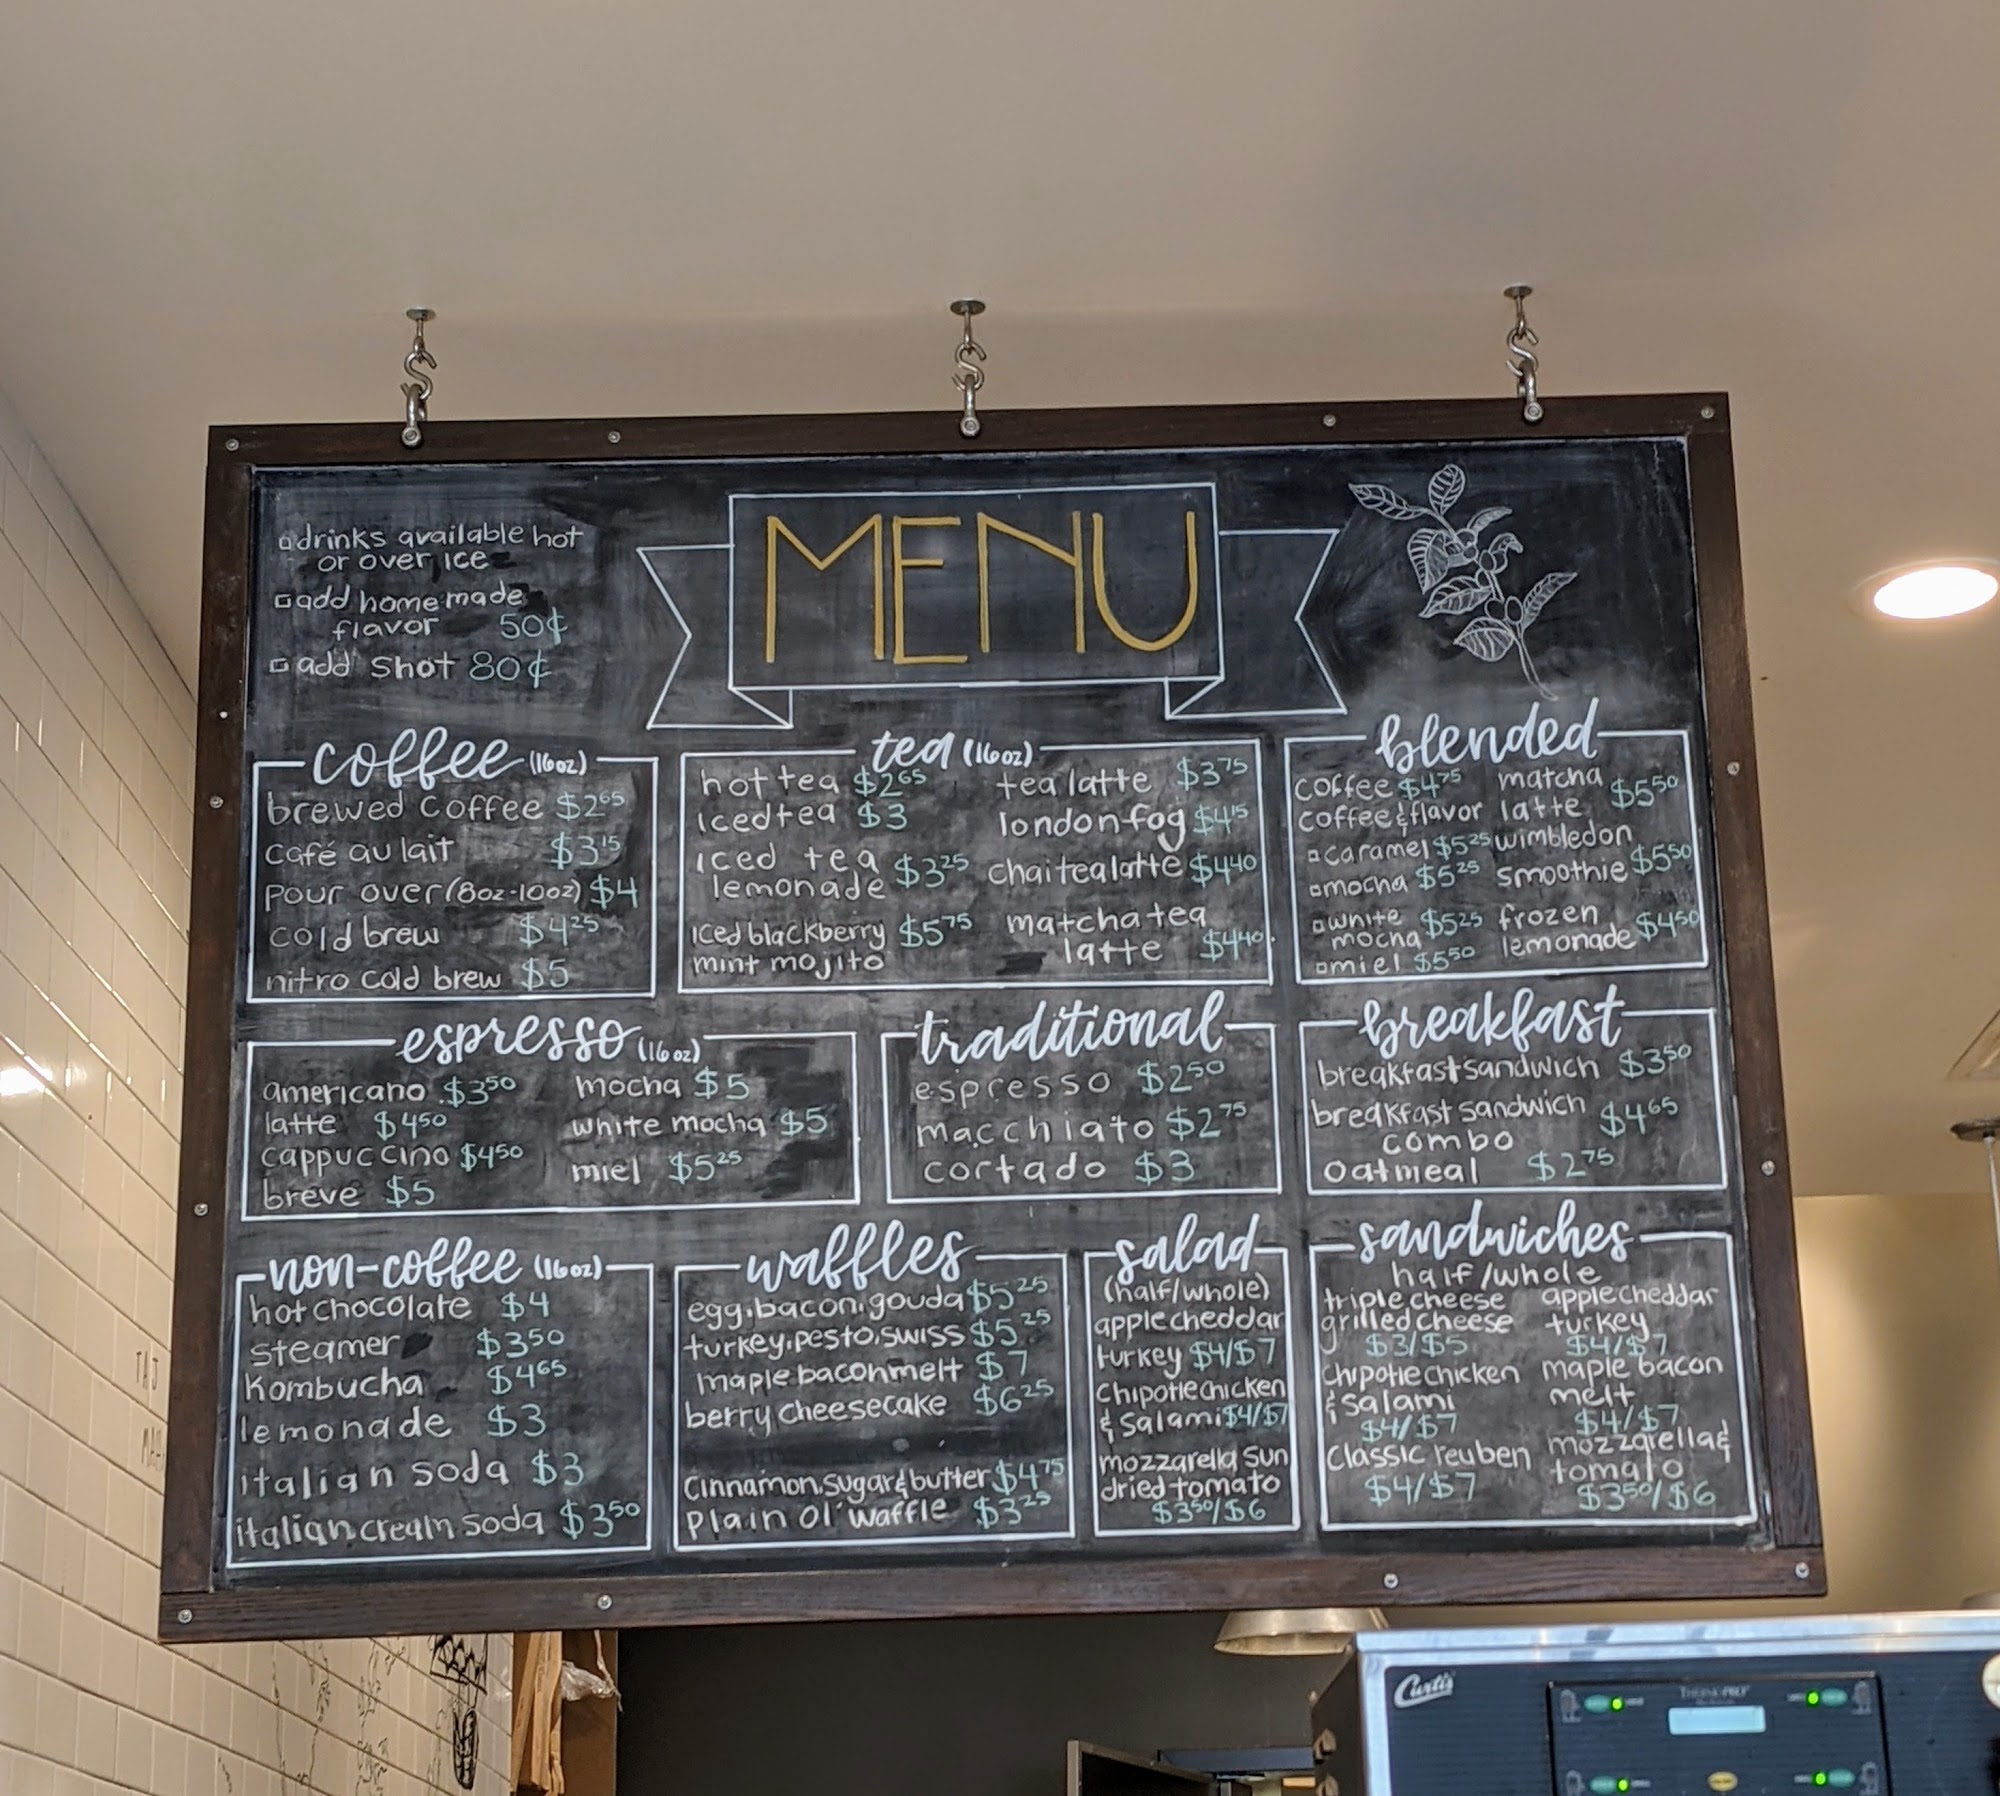 drinks available hot
or over ice
add homemade
flavor 50¢
add shot 80¢
MENU
coffee (16oz)
brewed coffee $2.65
café au lait $3.15
pour over (8oz-10oz) $4
cold brew $4.25
nitro cold brew $5
tea (16oz)
hot tea $2.65
iced tea $3
iced tea
lemonade $3.25
iced blackberry $5.75
mint mojito
tea latte $3.75
london fog $4.15
chai tea latte $4.40
matcha tea
latte $4.40
blended
coffee $4.75
coffee & flavor
caramel $5.25
mocha $5.25
white
mocha $5.25
miel $5.50
matcha
latte $5.50
wimbledon
smoothie $5.50
frozen
lemonade $4.50
espresso (16oz)
americano $3.50
latte $4.50
cappuccino $4.50
breve $5
mocha $5
white mocha $5
miel $5.25
traditional
espresso $2.50
macchiato $2.75
cortado $3
breakfast
breakfast sandwich $3.50
breakfast sandwich
combo $4.65
oatmeal $2.75
non-coffee (16oz)
hot chocolate $4
steamer $3.50
kombucha $4.65
lemonade $3
italian soda $3
italian cream soda $3.50
waffles
egg, bacon, gouda $5.25
turkey, pesto, swiss $5.25
maple bacon melt $7
berry cheesecake $6.25
cinnamon, sugar & butter $4.75
plain ol' waffle $3.25
salad
(half/whole)
apple cheddar
turkey $4/$7
chipotle chicken
& salami $4/$7
mozzarella sun
dried tomato
$3.50/$6
sandwiches
half/whole
triple cheese
grilled cheese
$3/$5
chipotle chicken
& salami
$4/$7
classic reuben
$4/$7
apple cheddar
turkey
$4/$7
maple bacon
melt
$4/$7
mozzarella &
tomato
$3.50/$6
Curtis